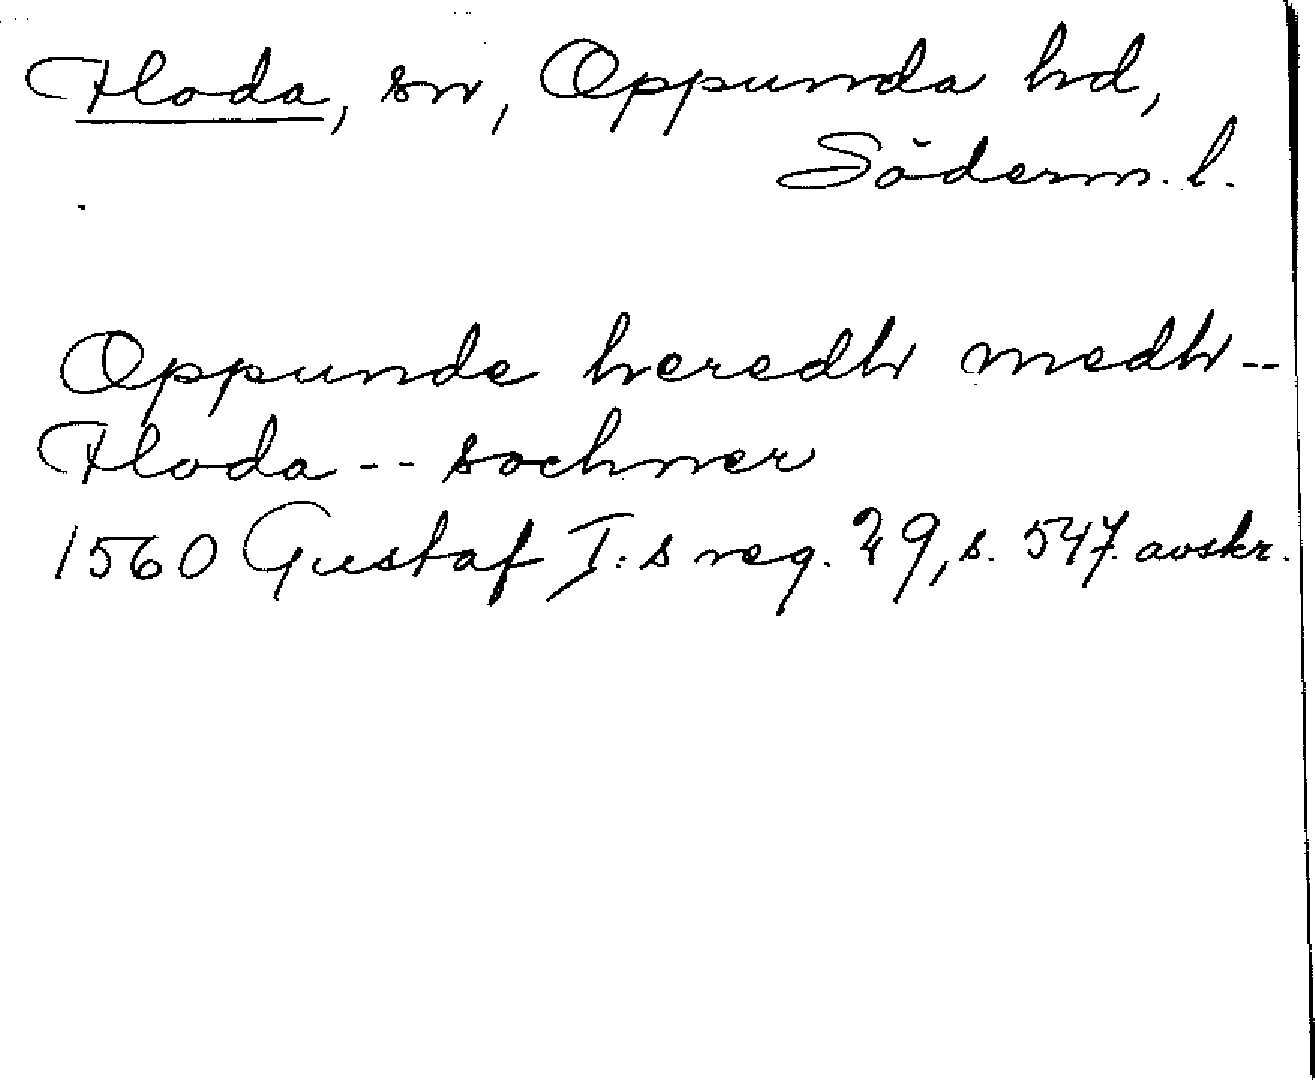 Floda, sn, Oppunda hd,
Söderm. l.
Oppunde heredh medh --
Floda -- sochner
1560 Gustaf I:s reg. 29, s. 547. avskr.